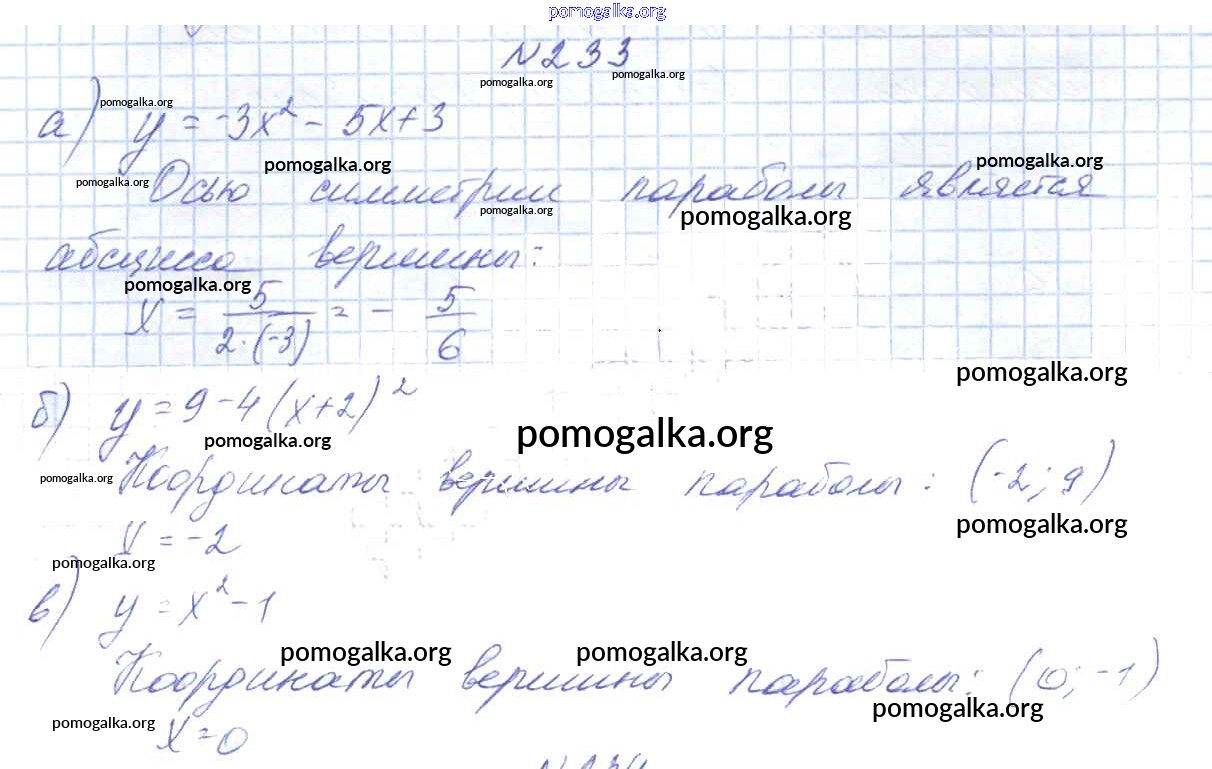 pomogalka.org
N233
pomogalka.org pomogalka.org
pomogalka.org
а) y = -3x² - 5x+3
pomogalka.org pomogalka.org
pomogalka.org
Осью симметрии параболы является
pomogalka.org pomogalka.org
абсцисса вершины:
pomogalka.org
x = 5/(2·(-3)) = - 5/6
pomogalka.org
б) y = 9 - 4(x+2)²
pomogalka.org pomogalka.org
pomogalka.org
Координаты вершины параболы: (-2; 9)
pomogalka.org
x = -2
pomogalka.org
в) y = x² - 1
pomogalka.org pomogalka.org
Координаты вершины параболы: (0; -1)
pomogalka.org
pomogalka.org
x = 0